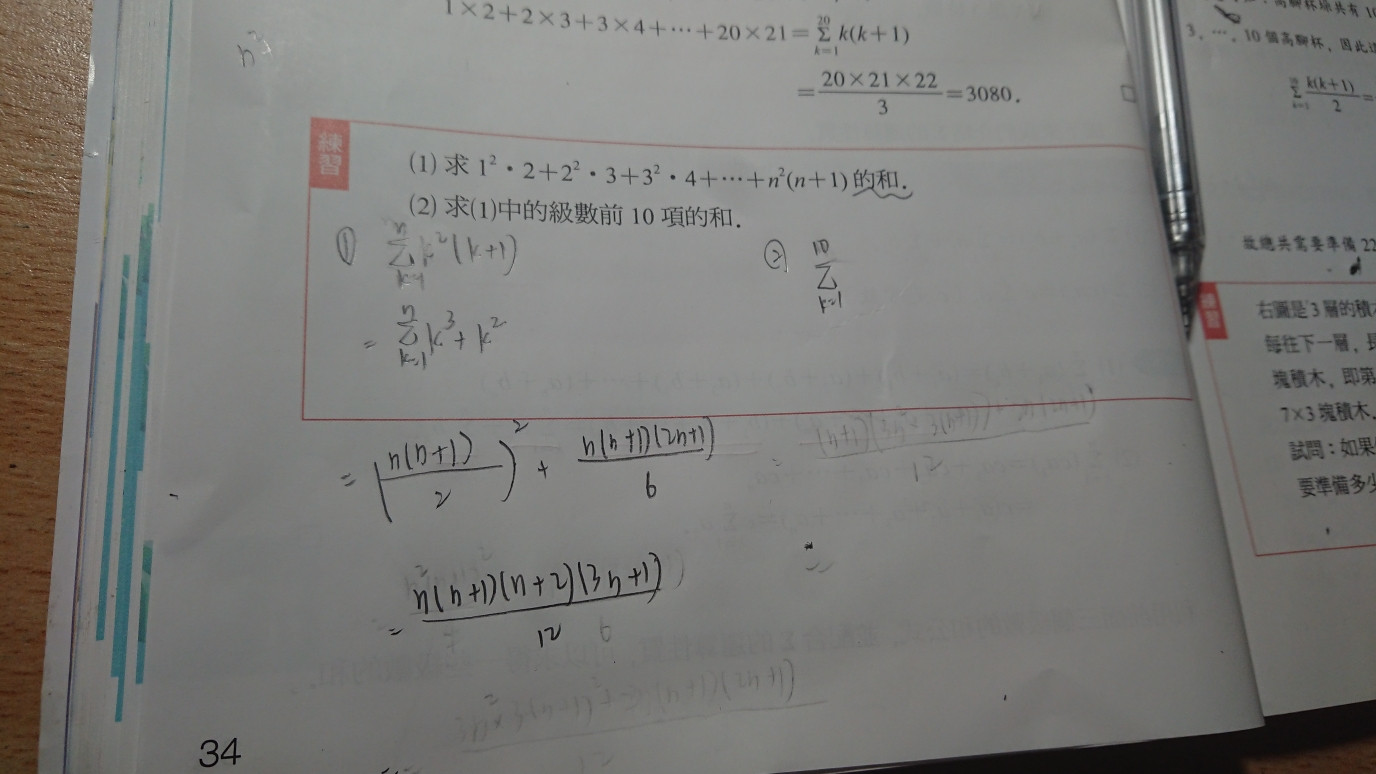 1×2+2×3+3×4+⋯+20×21=∑_{k=1}^{20} k(k+1)
=\frac{20×21×22}{3}=3080.
練習
(1) 求 1²·2+2²·3+3²·4+⋯+n²(n+1) 的和.
(2) 求(1)中的級數前 10 項的和.
① ∑_{k=1}^{n} k²(k+1)
= ∑_{k=1}^{n} k³+k²
= (\frac{n(n+1)}{2})² + \frac{n(n+1)(2n+1)}{6}
= \frac{n(n+1)(n+2)(3n+1)}{12}
② ∑_{k=1}^{10}
=
34
3, ⋯, 10 個高腳杯, 因此
\frac{k(k+1)}{2}=
故總共需要準備 22
練習
右圖是 3 層的積
每往下一層,
塊積木, 即第
7×3 塊積木.
試問:如果
要準備多少